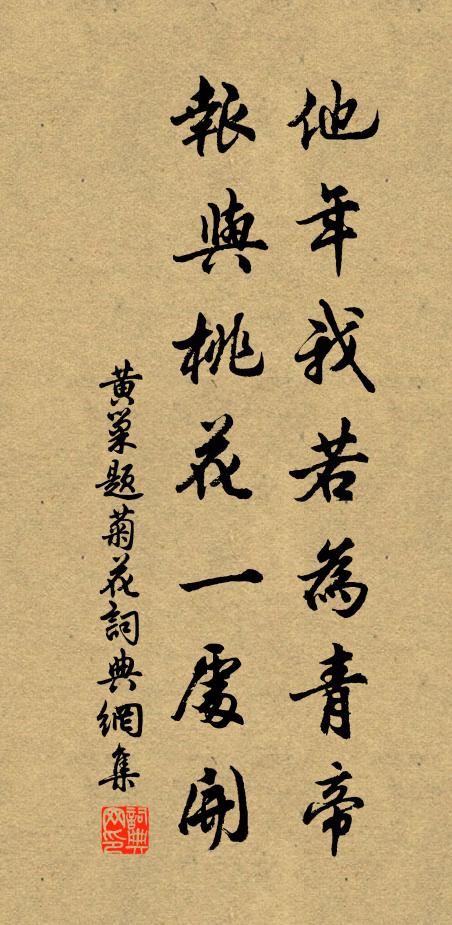 他年我若為青帝
報與桃花一處開
黄巢題菊花詞典網集
詞典网印